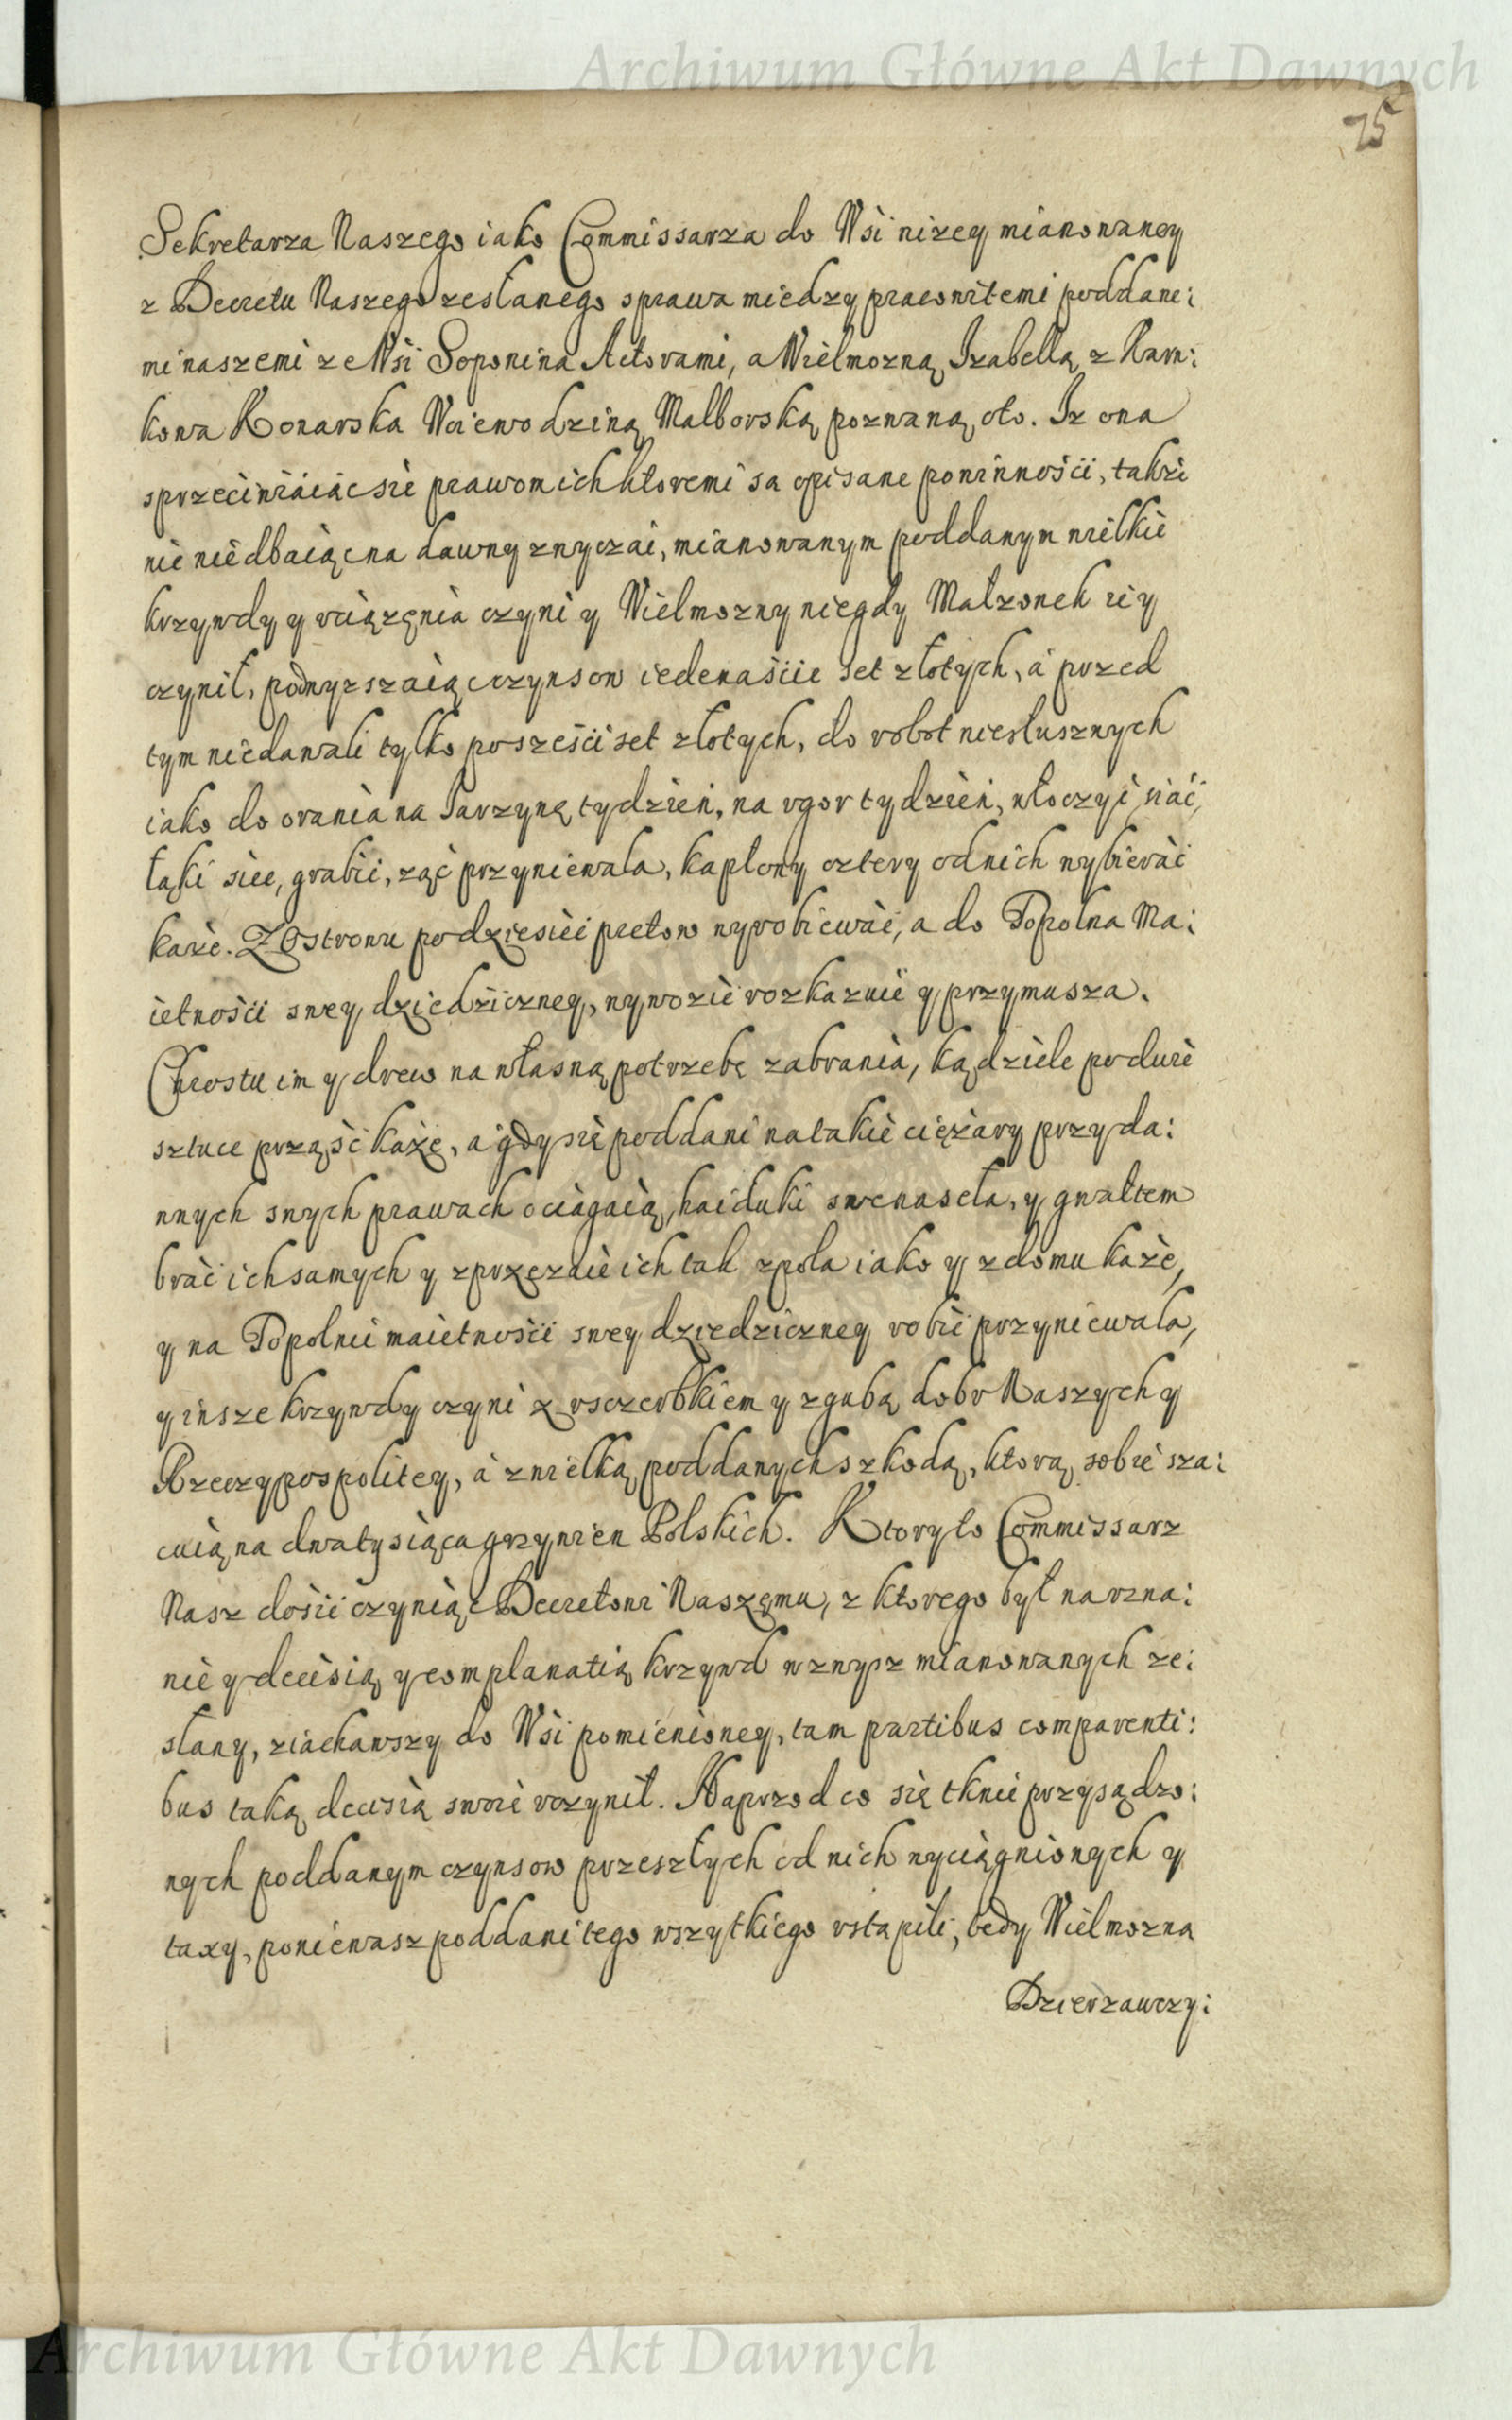 Archiwum Główne Akt Dawnych
75
Sekretarza Naszego iako Commissarza do Wsi niżey mianowaney
z Decretu Naszego zesłanego sprawa miedzy pracowitemi poddane:
mi naszemi ze Wsi Soponina Actorami, a Wielmozną Izabellą z Karn:
kowa Konarska Woiewodziną Malborską pozwaną oto. Iz ona
sprzeciwiaiąc sie prawom ich ktoremi sa opisane powinności, takze
nie niedbaiąc na dawny zwyczai, mianowanym poddanym wielkie
krzywdy y uciązęnia czyni y Wielmozny niegdy Małzonek iey
czynił, podwyzszaiąc czynsow iedenaście set złotych, a przed
tym niedawali tylko po sześci set złotych, do robot niesłusznych
iako do orania na Jarzynę tydzień, na ugor tydzień, włoczyć, siać,
łąki siec, grabić, ząć przyniewala, kapłony cztery od nich wybierać
każe. Z Ostrowu po dziesięi prętow wyrobiewać, a do Popolna Ma:
iętności swey dziedziczney, wywozić rozkazuie y przymusza.
Chrostu im y drew na własną potrzebę zabrania, kądziele po dwie
sztuce prząść każe, a gdy się poddani na takie ciężary przy da:
wnych swych prawach ociągaią, haiduki swe nasela, y gwałtem
brać ich samych y zprzęzaie ich tak z pola iako y z domu każe,
y na Popolnie maietności swey dziedziczney robić przyniewala,
y insze krzywdy czyni z usczerbkiem y zgubą dobr Naszych y
Rzeczypospolitey, a z wielką poddanych szkodą, ktorą sobie sza:
cuią na dwa tysiąca grzywien Polskich. Ktory to Commissarz
Nasz dosić czyniąc Decretowi Naszęmu, z ktorego był na uzna:
nie y decisią y complanatią krzywd wzwysz mianowanych ze:
słany, ziachawszy do Wsi pomienioney, tam partibus comparenti:
bus taką decisią swoię uczynił. Naprzod co się tknie przysądzo:
nych poddanym czynsow przeszłych od nich wyciągnionych y
taxy, poniewasz poddani tego wszytkiego ustąpili, tedy Wielmozna
Dzierzawczy:
Archiwum Główne Akt Dawnych